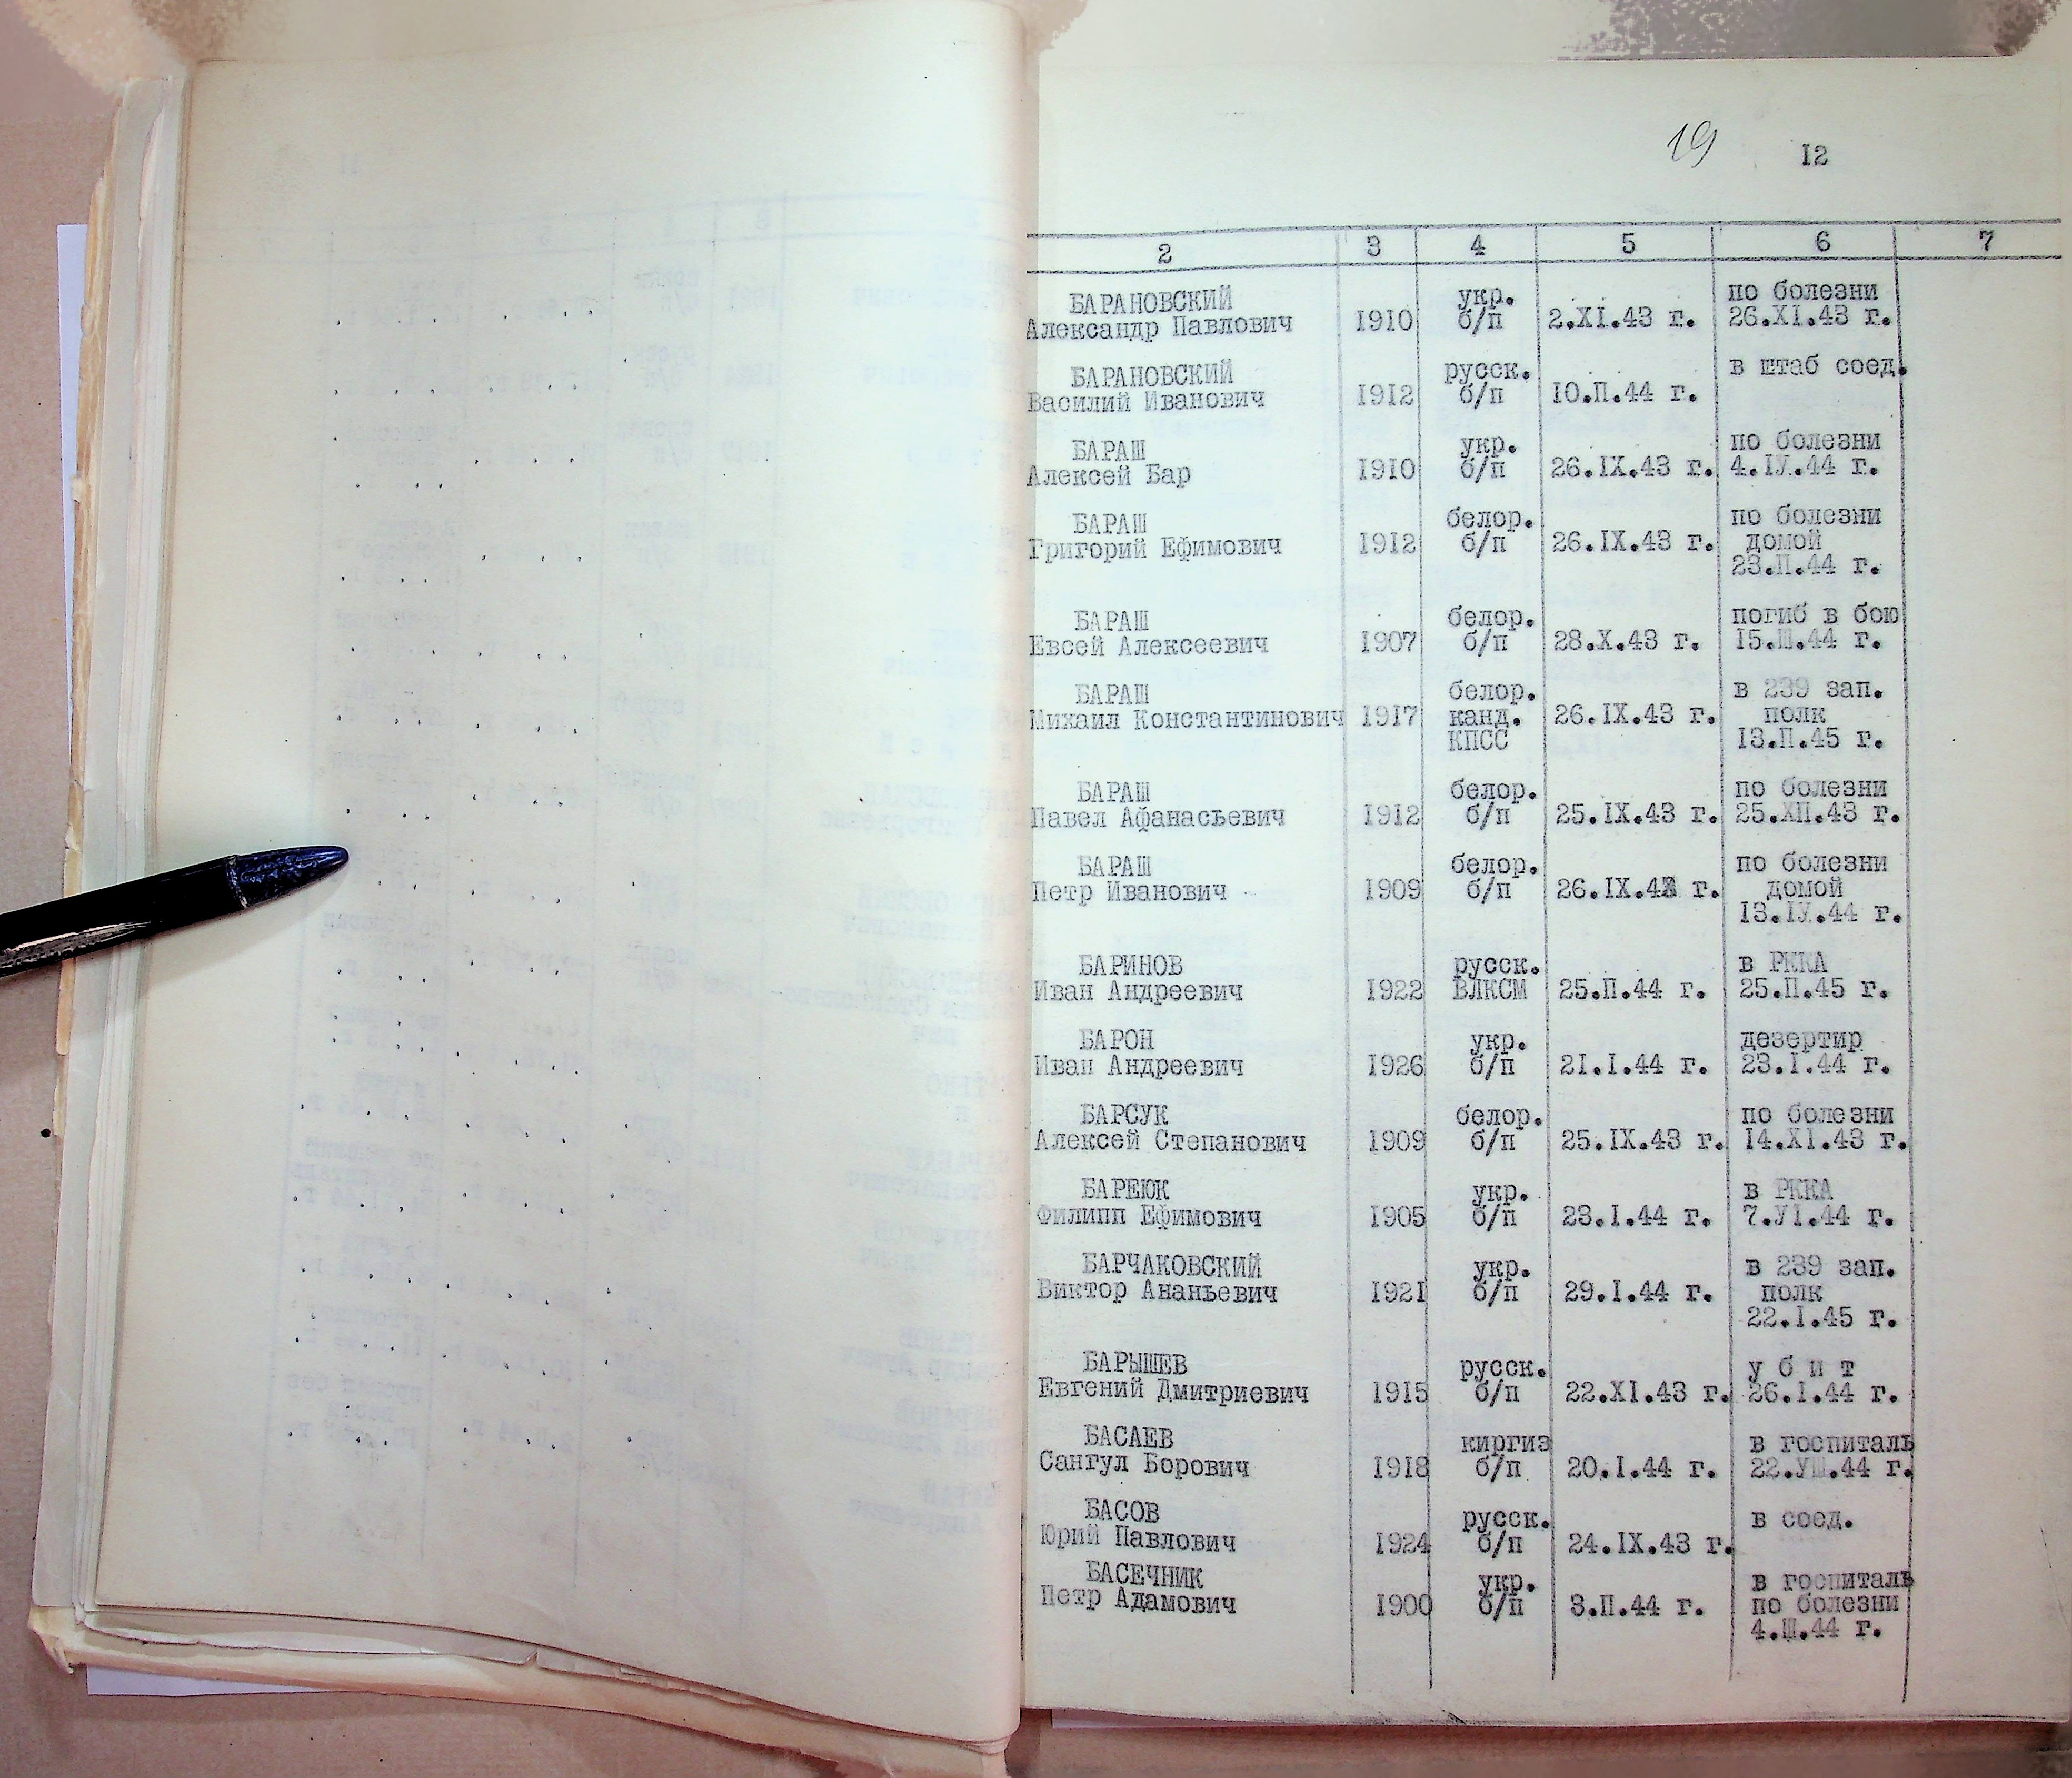 19 12
2 3 4 5 6 7
БАРАНОВСКИЙ укр. по болезни
Александр Павлович 1910 б/п 2.XI.43 г. 26.XI.43 г.
БАРАНОВСКИЙ русск. в штаб соед.
Василий Иванович 1912 б/п 10.П.44 г.
БАРАШ укр. по болезни
Алексей Бар 1910 б/п 26.IX.43 г. 4.IУ.44 г.
БАРАШ белор. по болезни
Григорий Ефимович 1912 б/п 26.IX.43 г. домой
23.П.44 г.
БАРАШ белор. погиб в бою
Евсей Алексеевич 1907 б/п 28.X.43 г. 15.Ш.44 г.
БАРАШ белор. в 239 зап.
Михаил Константинович 1917 канд. 26.IX.43 г. полк
КПСС 13.П.45 г.
БАРАШ белор. по болезни
Павел Афанасьевич 1912 б/п 25.IX.43 г. 25.ХП.43 г.
БАРАШ белор. по болезни
Петр Иванович 1909 б/п 26.IX. г. домой
13.IУ.44 г.
БАРИНОВ русск. в РККА
Иван Андреевич 1922 ВЛКСМ 25.П.44 г. 25.П.45 г.
БАРОН укр. дезертир
Иван Андреевич 1926 б/п 21.I.44 г. 23.I.44 г.
БАРСУК белор. по болезни
Алексей Степанович 1909 б/п 25.IX.43 г. 14.XI.43 г.
БАРЕЮК укр. в РККА
Филипп Ефимович 1905 б/п 23.I.44 г. 7.УI.44 г.
БАРЧАКОВСКИЙ укр. в 239 зап.
Виктор Ананьевич 1921 б/п 29.I.44 г. полк
22.I.45 г.
БАРЫШЕВ русск. у б и т
Евгений Дмитриевич 1915 б/п 22.XI.43 г. 26.I.44 г.
БАСАЕВ киргиз в госпиталь
Сангул Борович 1918 б/п 20.I.44 г. 22.УШ.44 г.
БАСОВ русск. в соед.
Юрий Павлович 1924 б/п 24.IX.43 г.
БАСЕЧНИК укр. в госпиталь
Петр Адамович 1900 б/п 3.П.44 г. по болезни
4.Ш.44 г.